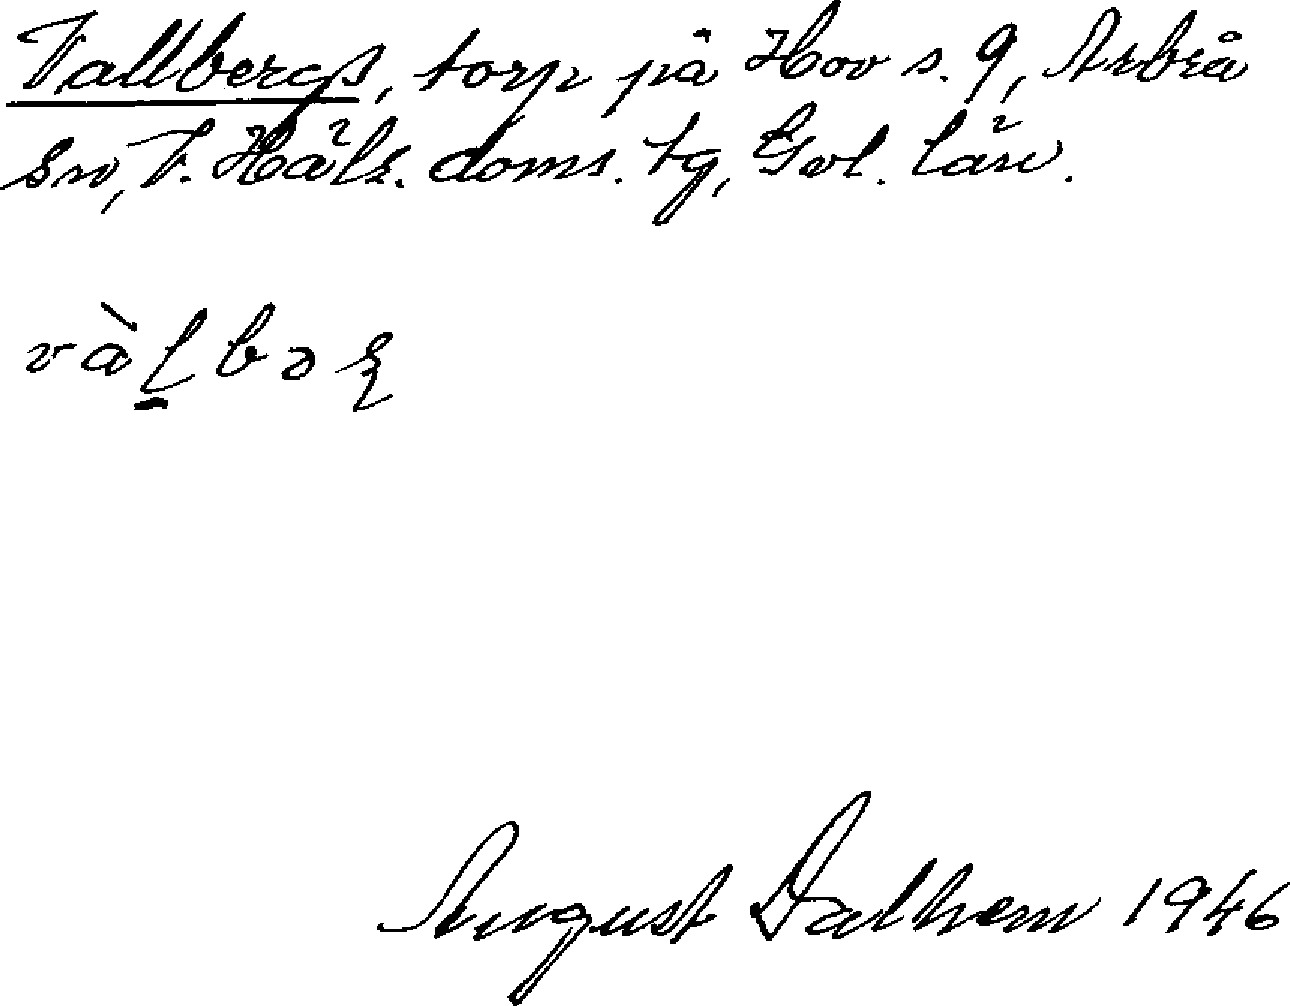 Vallbergs, torp på Hov s. 9, Arbrå
sn, V. Häls. doms. tg, Gvl. län.
August Dalhem 1946